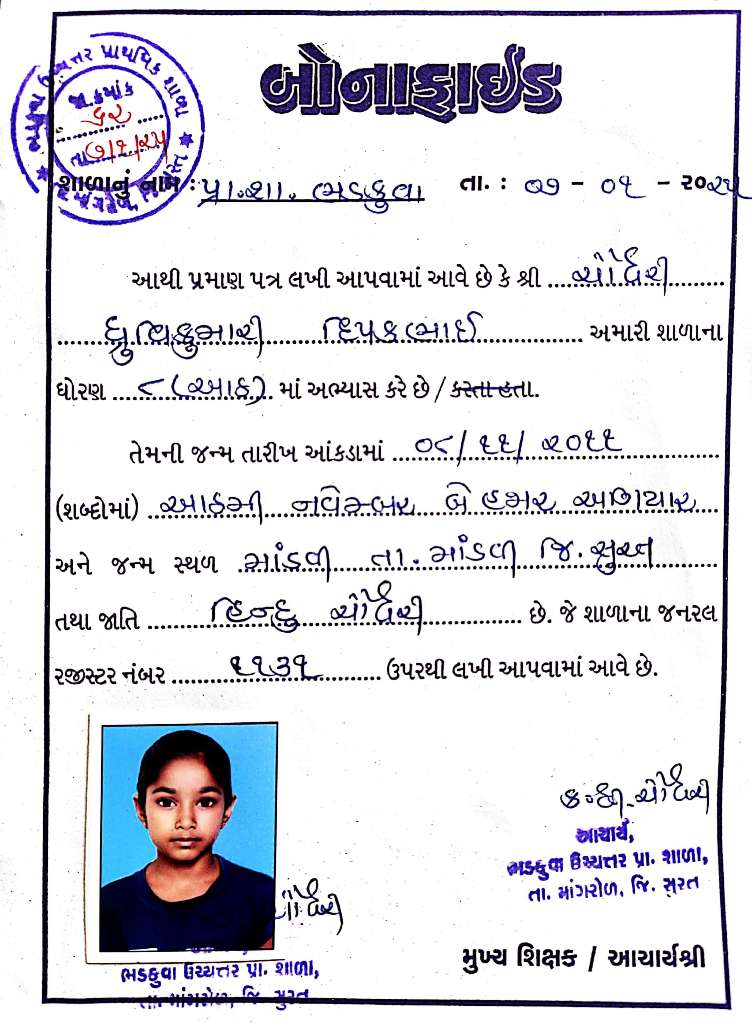 બોનાફાઈડ
ઉચ્ચત્તર પ્રાથમિક શાળા
જા.ક્રમાંક
૬૨
તા. ૭/૧/૨૫
શાળાનું નામ : પ્રા.શા. ભડકુવા તા. : ૦૭ - ૦૧ - ૨૦૨૫
આથી પ્રમાણ પત્ર લખી આપવામાં આવે છે કે શ્રી ચૌધરી
ધ્રુવિકુમારી દિપકભાઈ અમારી શાળાના
ધોરણ ૮ (આઠ) માં અભ્યાસ કરે છે / કરતા હતા.
તેમની જન્મ તારીખ આંકડામાં ૦૮/૧૧/૨૦૧૧
(શબ્દોમાં) આઠમી નવેમ્બર બે હજાર અગિયાર
અને જન્મ સ્થળ માંડવી તા. માંડવી જિ. સુરત
તથા જાતિ હિન્દુ ચૌધરી છે. જે શાળાના જનરલ
રજીસ્ટર નંબર ૧૧૩૧ ઉપરથી લખી આપવામાં આવે છે.
ચૌધરી
આચાર્ય,
ભડકુવા ઉચ્ચત્તર પ્રા. શાળા,
તા. માંગરોળ, જિ. સુરત
મુખ્ય શિક્ષક / આચાર્યશ્રી
ચૌધરી
ભડકુવા ઉચ્ચત્તર પ્રા. શાળા,
તા. માંગરોળ, જિ. સુરત